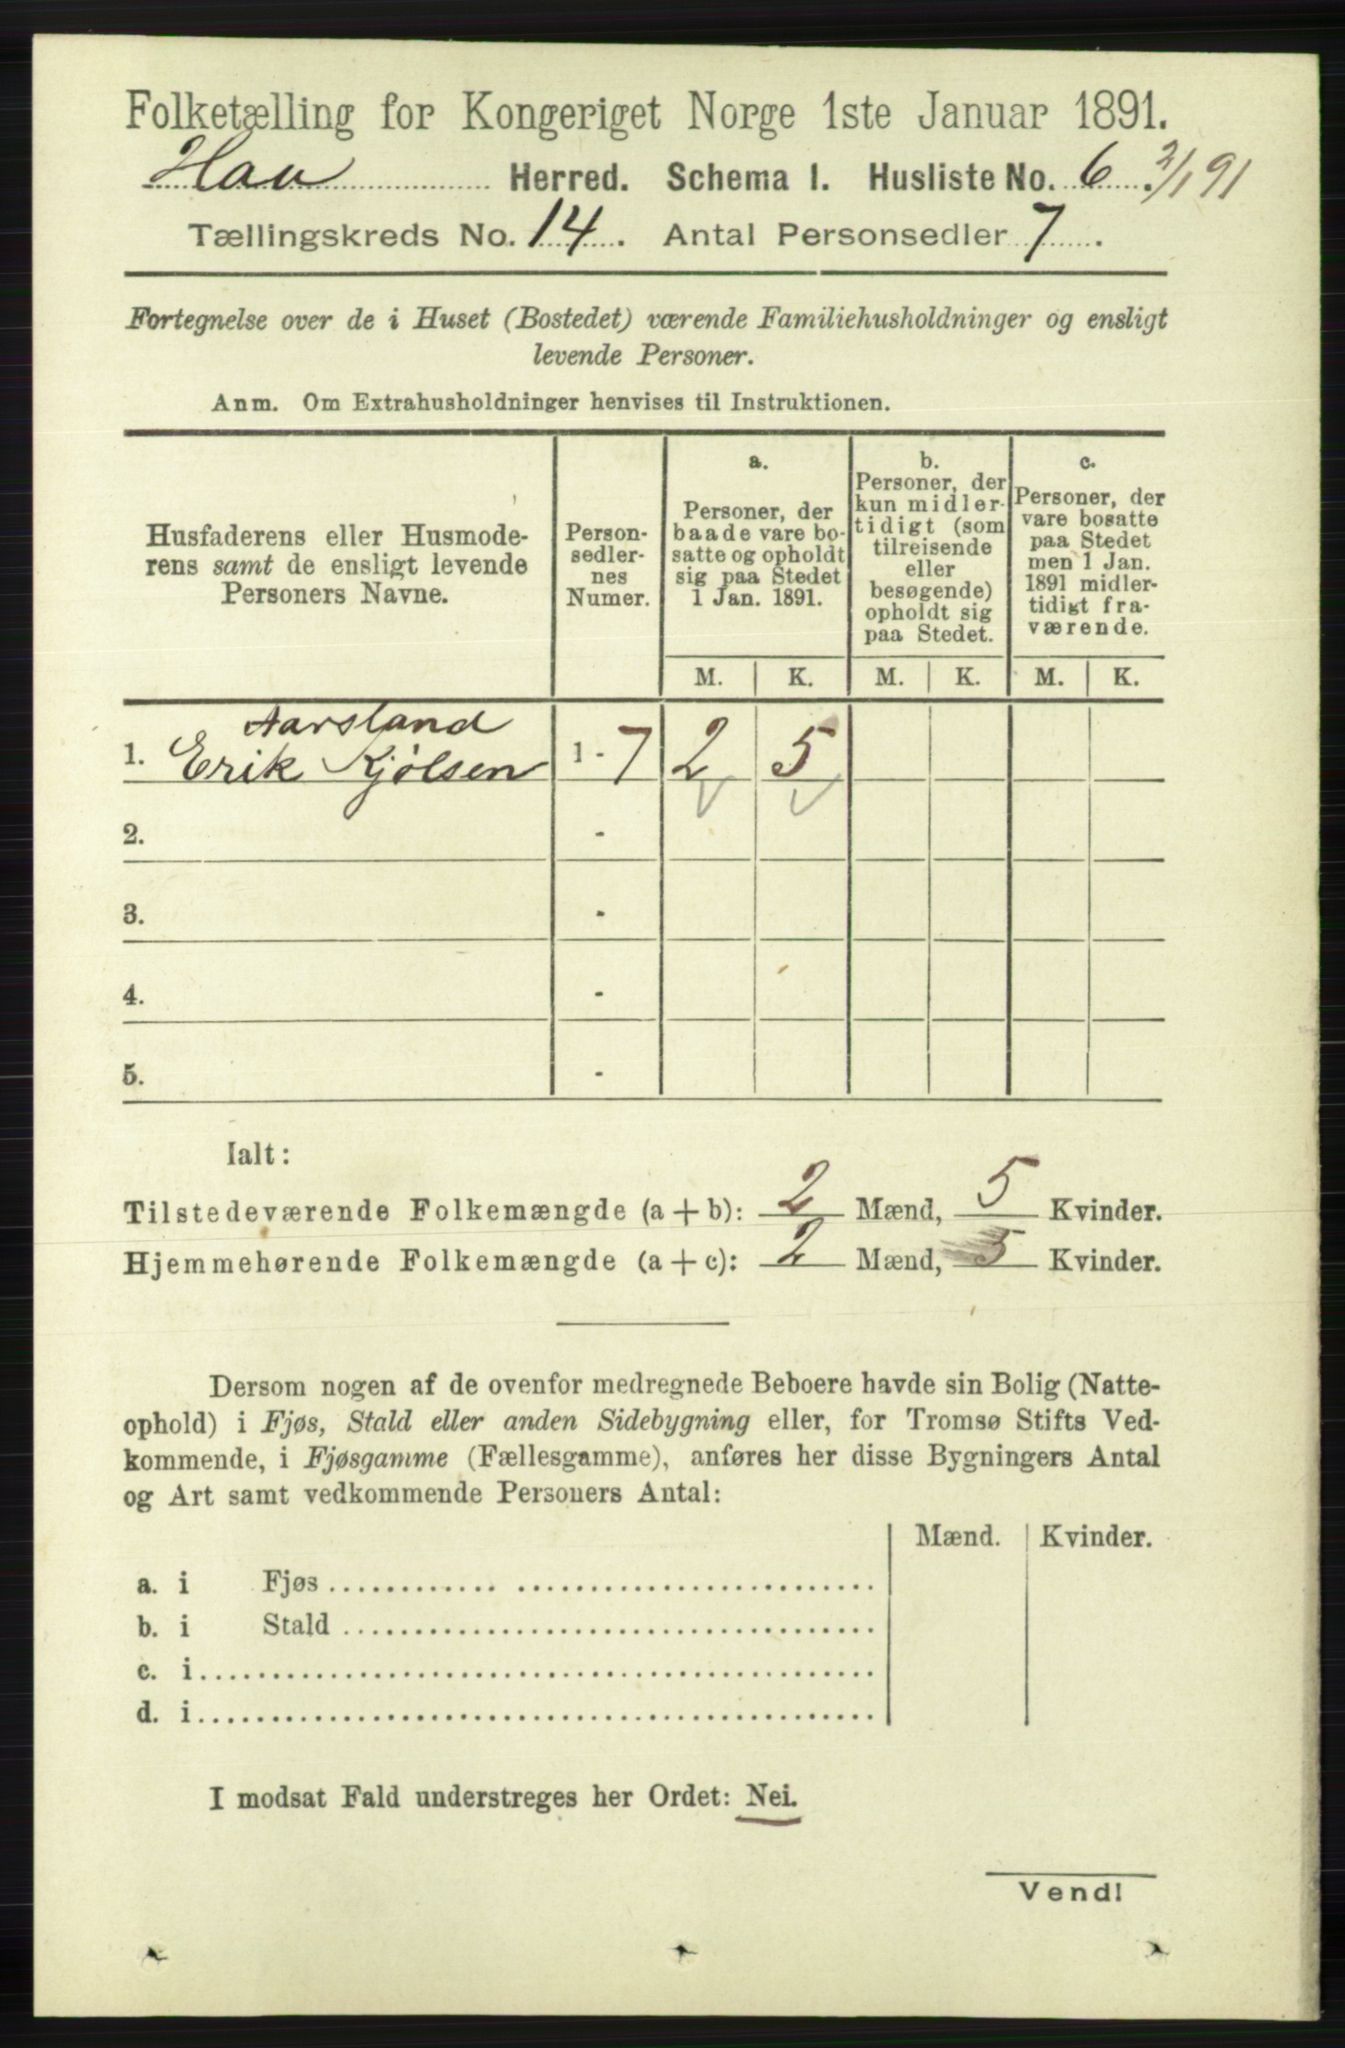 Folketælling for Kongeriget Norge 1ste Januar 1891.
Haa Herred. Schema 1. Husliste No. 6. 2/1 91
Tællingskreds No. 14. Antal Personsedler 7.
Fortegnelse over de i Huset (Bostedet) værende Familiehusholdninger og ensligt
levende Personer.
Anm. Om Extrahusholdninger henvises til Instruktionen.
Husfaderens eller Husmode-
rens samt de ensligt levende
Personers Navne.
Person-
sedler-
nes
Numer.
a.
Personer, der
baade vare bo-
satte og opholdt
sig paa Stedet
1 Jan. 1891.
b.
Personer, der
kun midler-
tidigt (som
tilreisende
eller
besøgende)
opholdt sig
paa Stedet.
c.
Personer, der
vare bosatte
paa Stedet
men 1 Jan.
1891 midler-
tidigt fra-
værende.
M. K. M. K. M. K.
Aarsland
1. Erik Kjølsen 1 - 7 2 5
2. -
3. -
4. -
5. -
Ialt:
Tilstedeværende Folkemængde (a + b): 2 Mænd, 5 Kvinder.
Hjemmehørende Folkemængde (a + c): 2 Mænd, 5 Kvinder.
Dersom nogen af de ovenfor medregnede Beboere havde sin Bolig (Natte-
ophold) i Fjøs, Stald eller anden Sidebygning eller, for Tromsø Stifts Ved-
kommende, i Fjøsgamme (Fællesgamme), anføres her disse Bygningers Antal
og Art samt vedkommende Personers Antal:
Mænd. Kvinder.
a. i Fjøs
b. i Stald
c. i
d. i
I modsat Fald understreges her Ordet: Nei.
Vend!